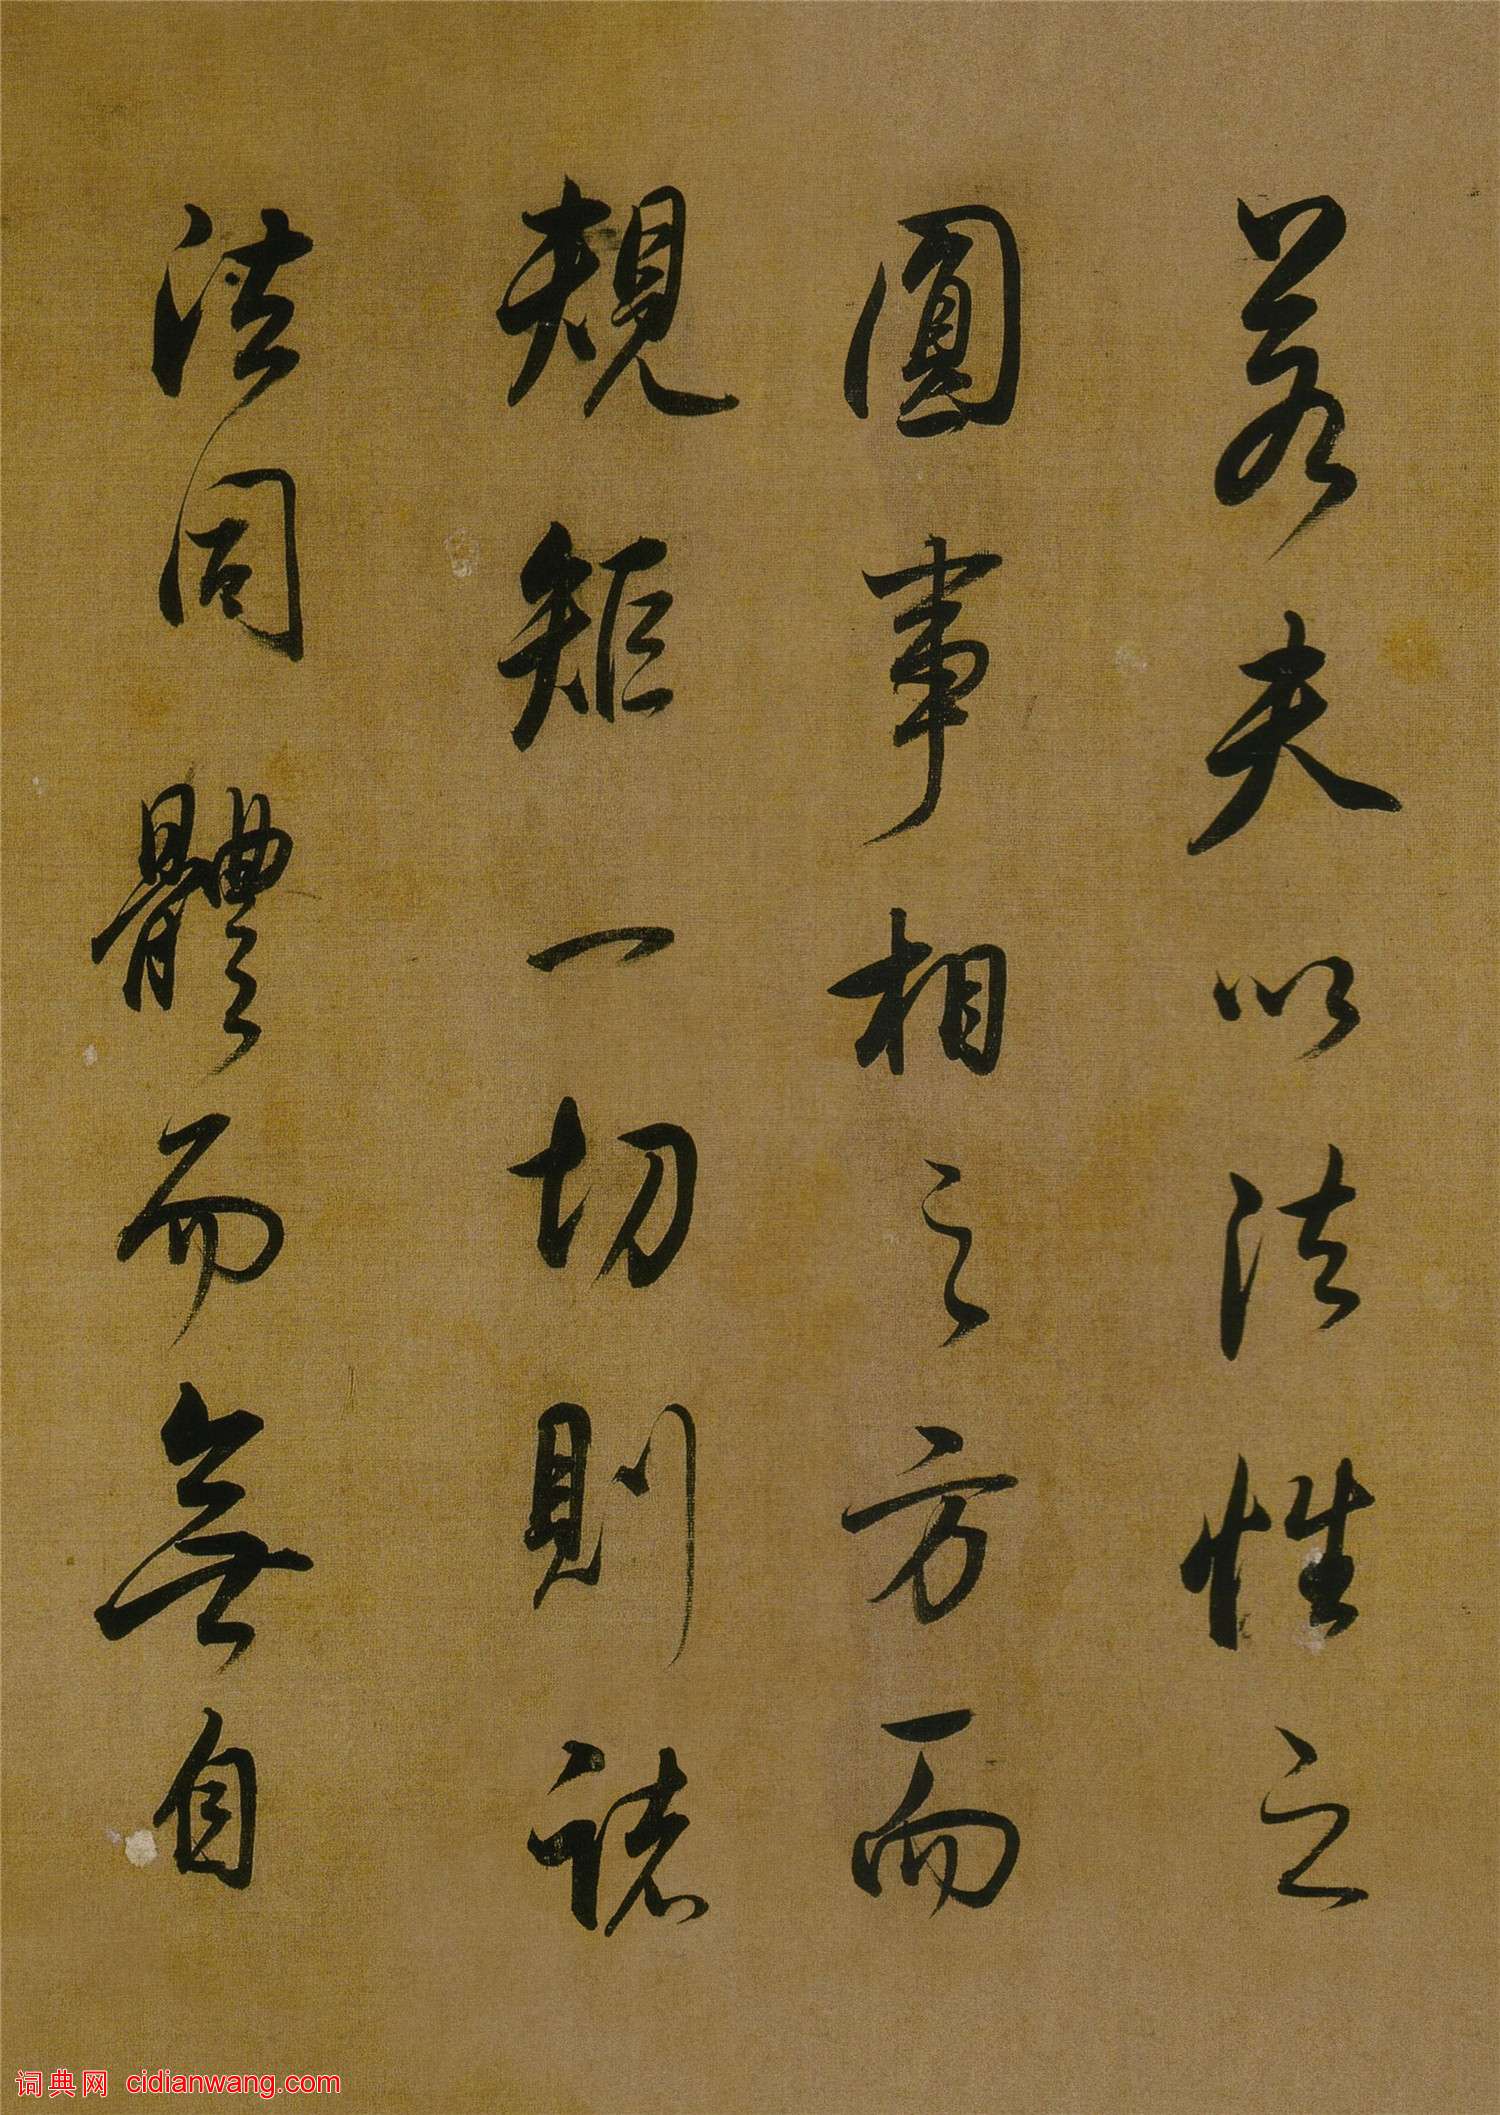 若夫以法性之
圓事相之方而
規矩一切則諸
法同體而無自
词典网 cidianwang.com